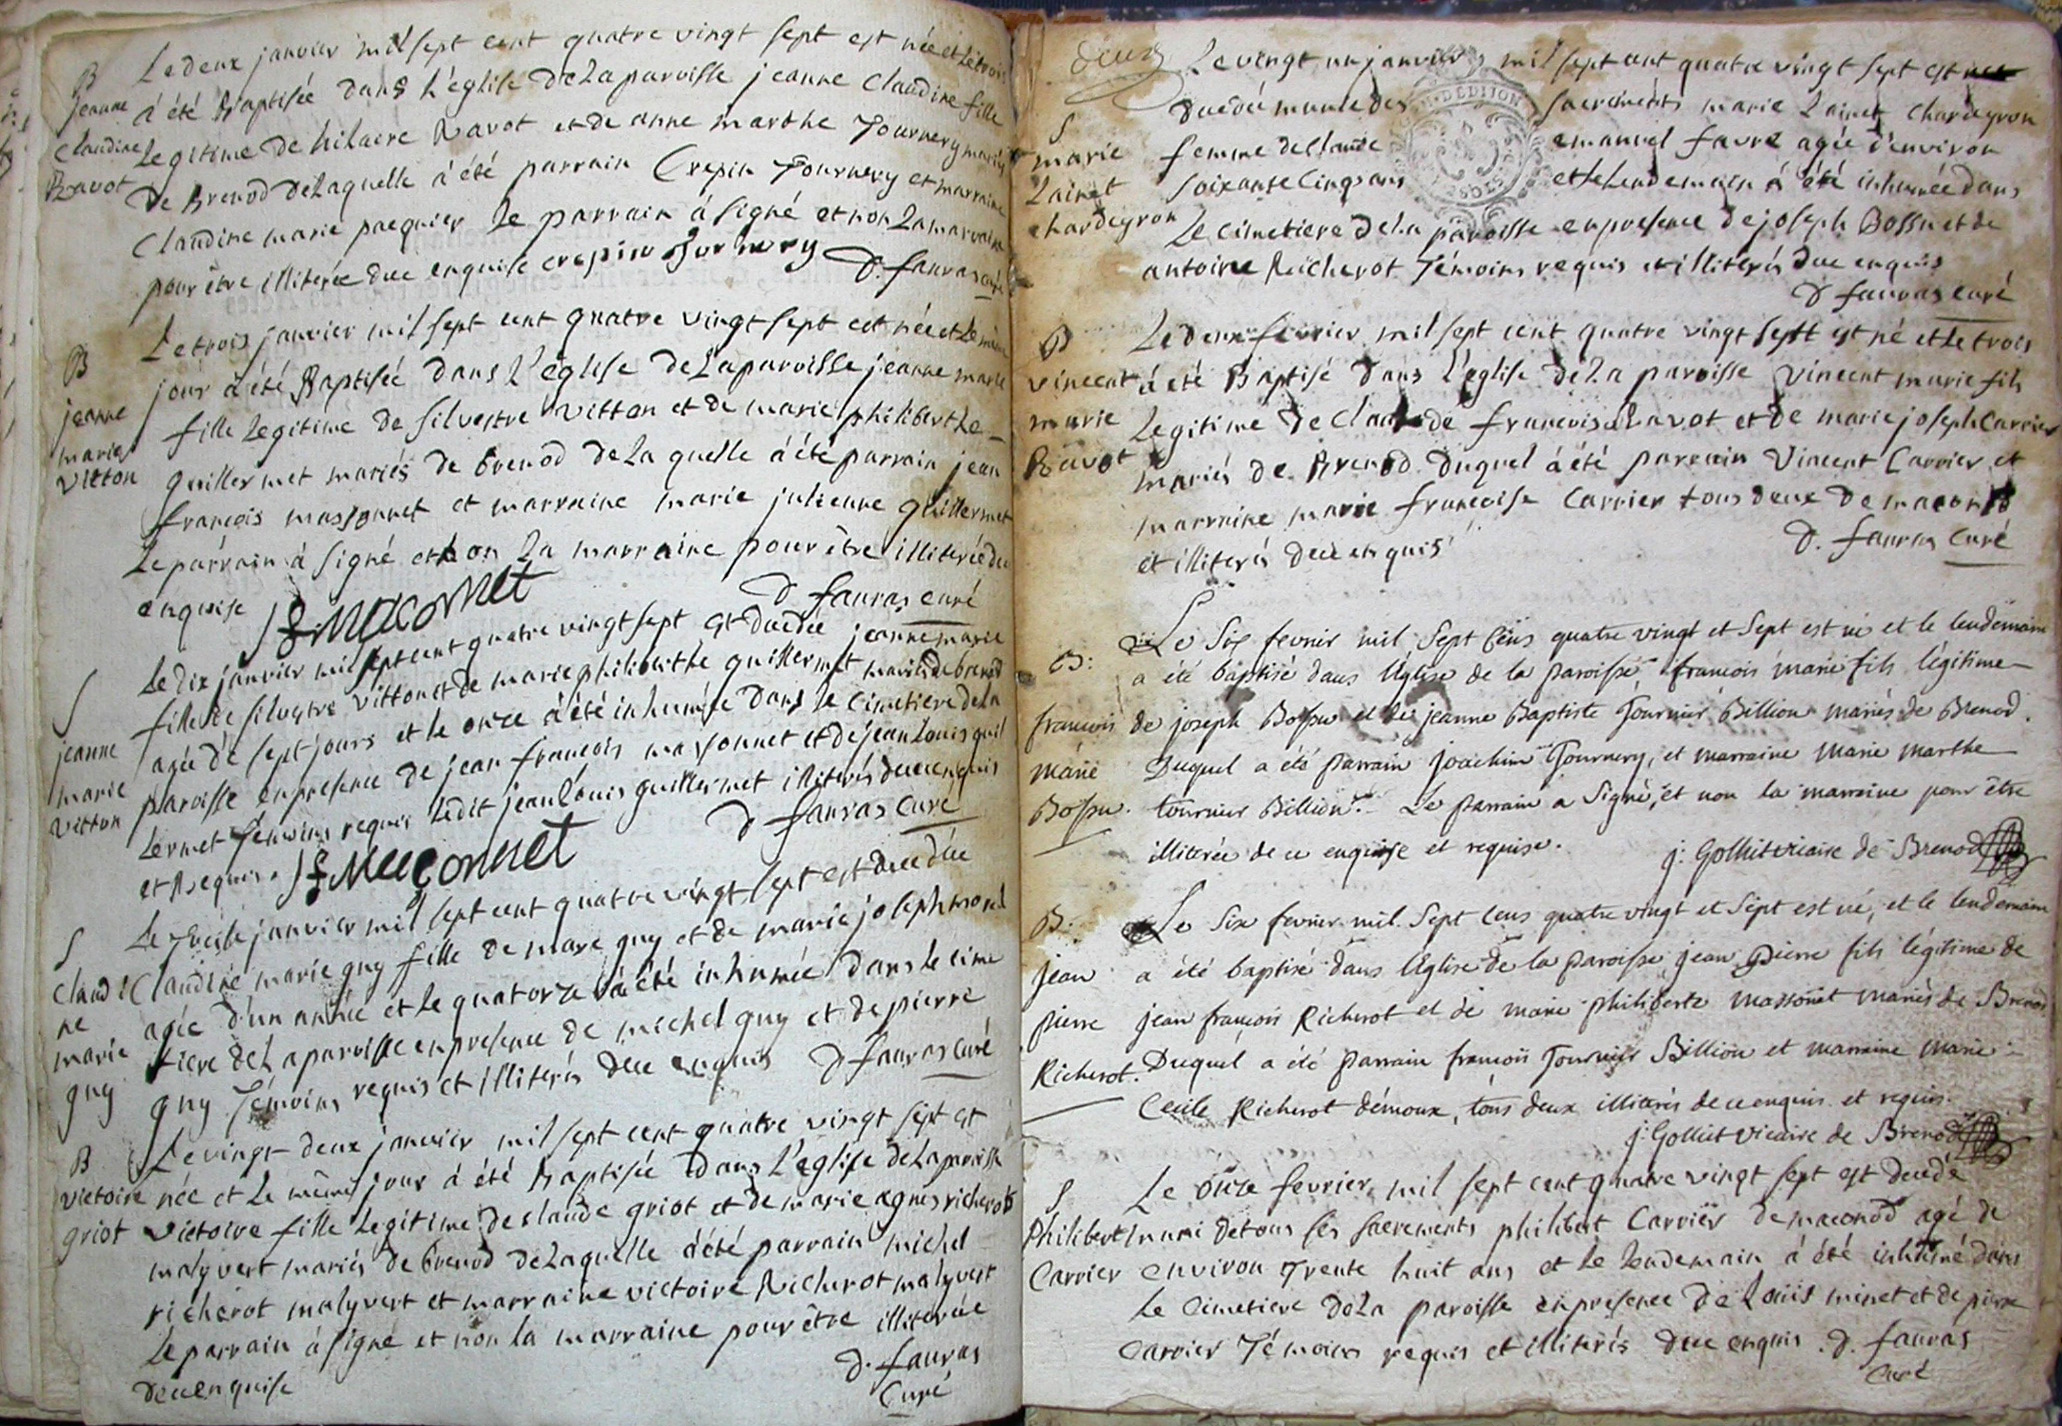 B Le deux janvier mil sept cent quatre vingt sept est née et le trois
jeanne à été Baptisée dans L'église de La paroisse jeanne Claudine fille
Claudine Legitime de hilaire Ravot et de anne marthe Tournery mariés
Ravot de Brenod de Laquelle à été parrain Crepin Tournery et marraine
Claudine marie pacquier Le parrain à signé et non La marraine
pour être illiterée de ce enquise crepin Turnery
D. fauras curé
B Le trois janvier mil sept cent quatre vingt sept est née et Le même
jeanne jour à été Baptisée dans L'église de La paroisse jeanne marie
marie fille Legitime de silvestre vitton et de marie philiberthe
vitton guillermet mariés de brenod de La quelle à été parrain jean
françois massonnet et marraine marie julienne guillermet
Le parrain à signé et non La marraine pour être illiterée de ce
enquise jf maconnet
D fauras curé
S Le dix janvier mil sept cent quatre vingt sept est decedée jeanne marie
fille de silvestre vitton et de marie philiberthe guillermet mariés de brenod
jeanne agée de sept jours et le onze à été inhumée dans le cimetiere de La
marie paroisse en presence de jean françois massonnet et de jean Louis guil
vitton Lermet Temoins requis Ledit jean Louis guillermet illiterés de ce enquis
et Requis. jf Meaçonnet
D fauras curé
S Le Treize janvier mil sept cent quatre vingt sept est decedée
Claudi Claudine marie guy fille de marc guy et de marie joseph morel
ne agée d'un année et Le quatorze à été inhumée dans Le cime
marie tiere de La paroisse en presence de michel guy et de pierre
guy guy Témoins requis et illiterés de ce enquis D fauras curé
B Le vingt deux janvier mil sept cent quatre vingt sept est
victoire née et Le même jour à été Baptisée dans L'eglise de La paroisse
griot victoire fille Legitime de claude griot et de marie agnes richerot
malyvert mariés de brenod de Laquelle à été parrain michel
richerot malyvert et marraine victoire Richerot malyvert
Le parrain à signé et non La marraine pour être illiterée
de ce enquise
D. fauras
Curé
deux
Le vingt un janvier mil sept cent quatre vingt sept est
decedée munie des sacrements marie Lainet chardeyron
S
marie femme de claude emanuel favre agée d'environ
Lainet soixante cinq ans et Le lendemain à été inhumée dans
chardeyron Le cimetiere de La paroisse en presence de joseph Bossu et de
antoine Richerot Témoins requis et illiterés de ce enquis
D fauras curé
B Le deux fevrier mil sept cent quatre vingt sept est né et Le trois
vincent à été Baptisé dans L'église de La paroisse vincent marie fils
marie Legitime de Claude françois Ravot et de marie joseph Carrier
Ravot mariés de Brenod duquel à été parrain Vincent Carrier et
marraine marie françoise Carrier tous deux de maconod
et illiterés de ce enquis
D. fauras Curé
Le Six fevrier mil Sept Cens quatre vingt et Sept est né et le lendemain
B: a été baptisé dans l'église de la paroisse françois marie fils légitime
françois de joseph Bossu et de jeanne Baptiste Tournier Billion mariés de Brenod.
marie Duquel a été parrain joachim Tournery, et marraine Marie marthe
Bossu. tournier Billion. Le parrain a signé, et non la marraine pour être
illiterée de ce enquise et requise.
j: Golliet vicaire de Brenod
B: Le Six fevrier mil Sept Cens quatre vingt et Sept est né, et le lendemain
jean a été baptisé dans l'église de la paroisse jean pierre fils légitime de
pierre jean françois Richerot et de marie philiberte massonet mariés de Brenod
Richerot. Duquel a été parrain françois Tournier Billion et marraine marie
Cecile Richerot démoux, tous deux illiterés de ce enquis et requis.
j: Golliet Vicaire de Brenod
S Le onze fevrier mil sept cent quatre vingt sept est decedé
Philibert muni de tous ses sacrements philibert Carrier de maconod agé de
Carrier environ Trente huit ans et Le Lendemain à été inhumé dans
Le Cimetiere de La paroisse en presence de Louis minet et de pierre
Carrier Témoins requis et illiterés de ce enquis. D. fauras
Curé